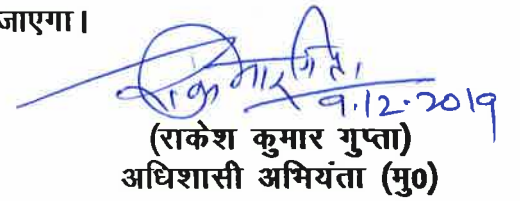 जाएगा।
9.12.2019
(राकेश कुमार गुप्ता)
अधिशासी अभियंता (मु0)